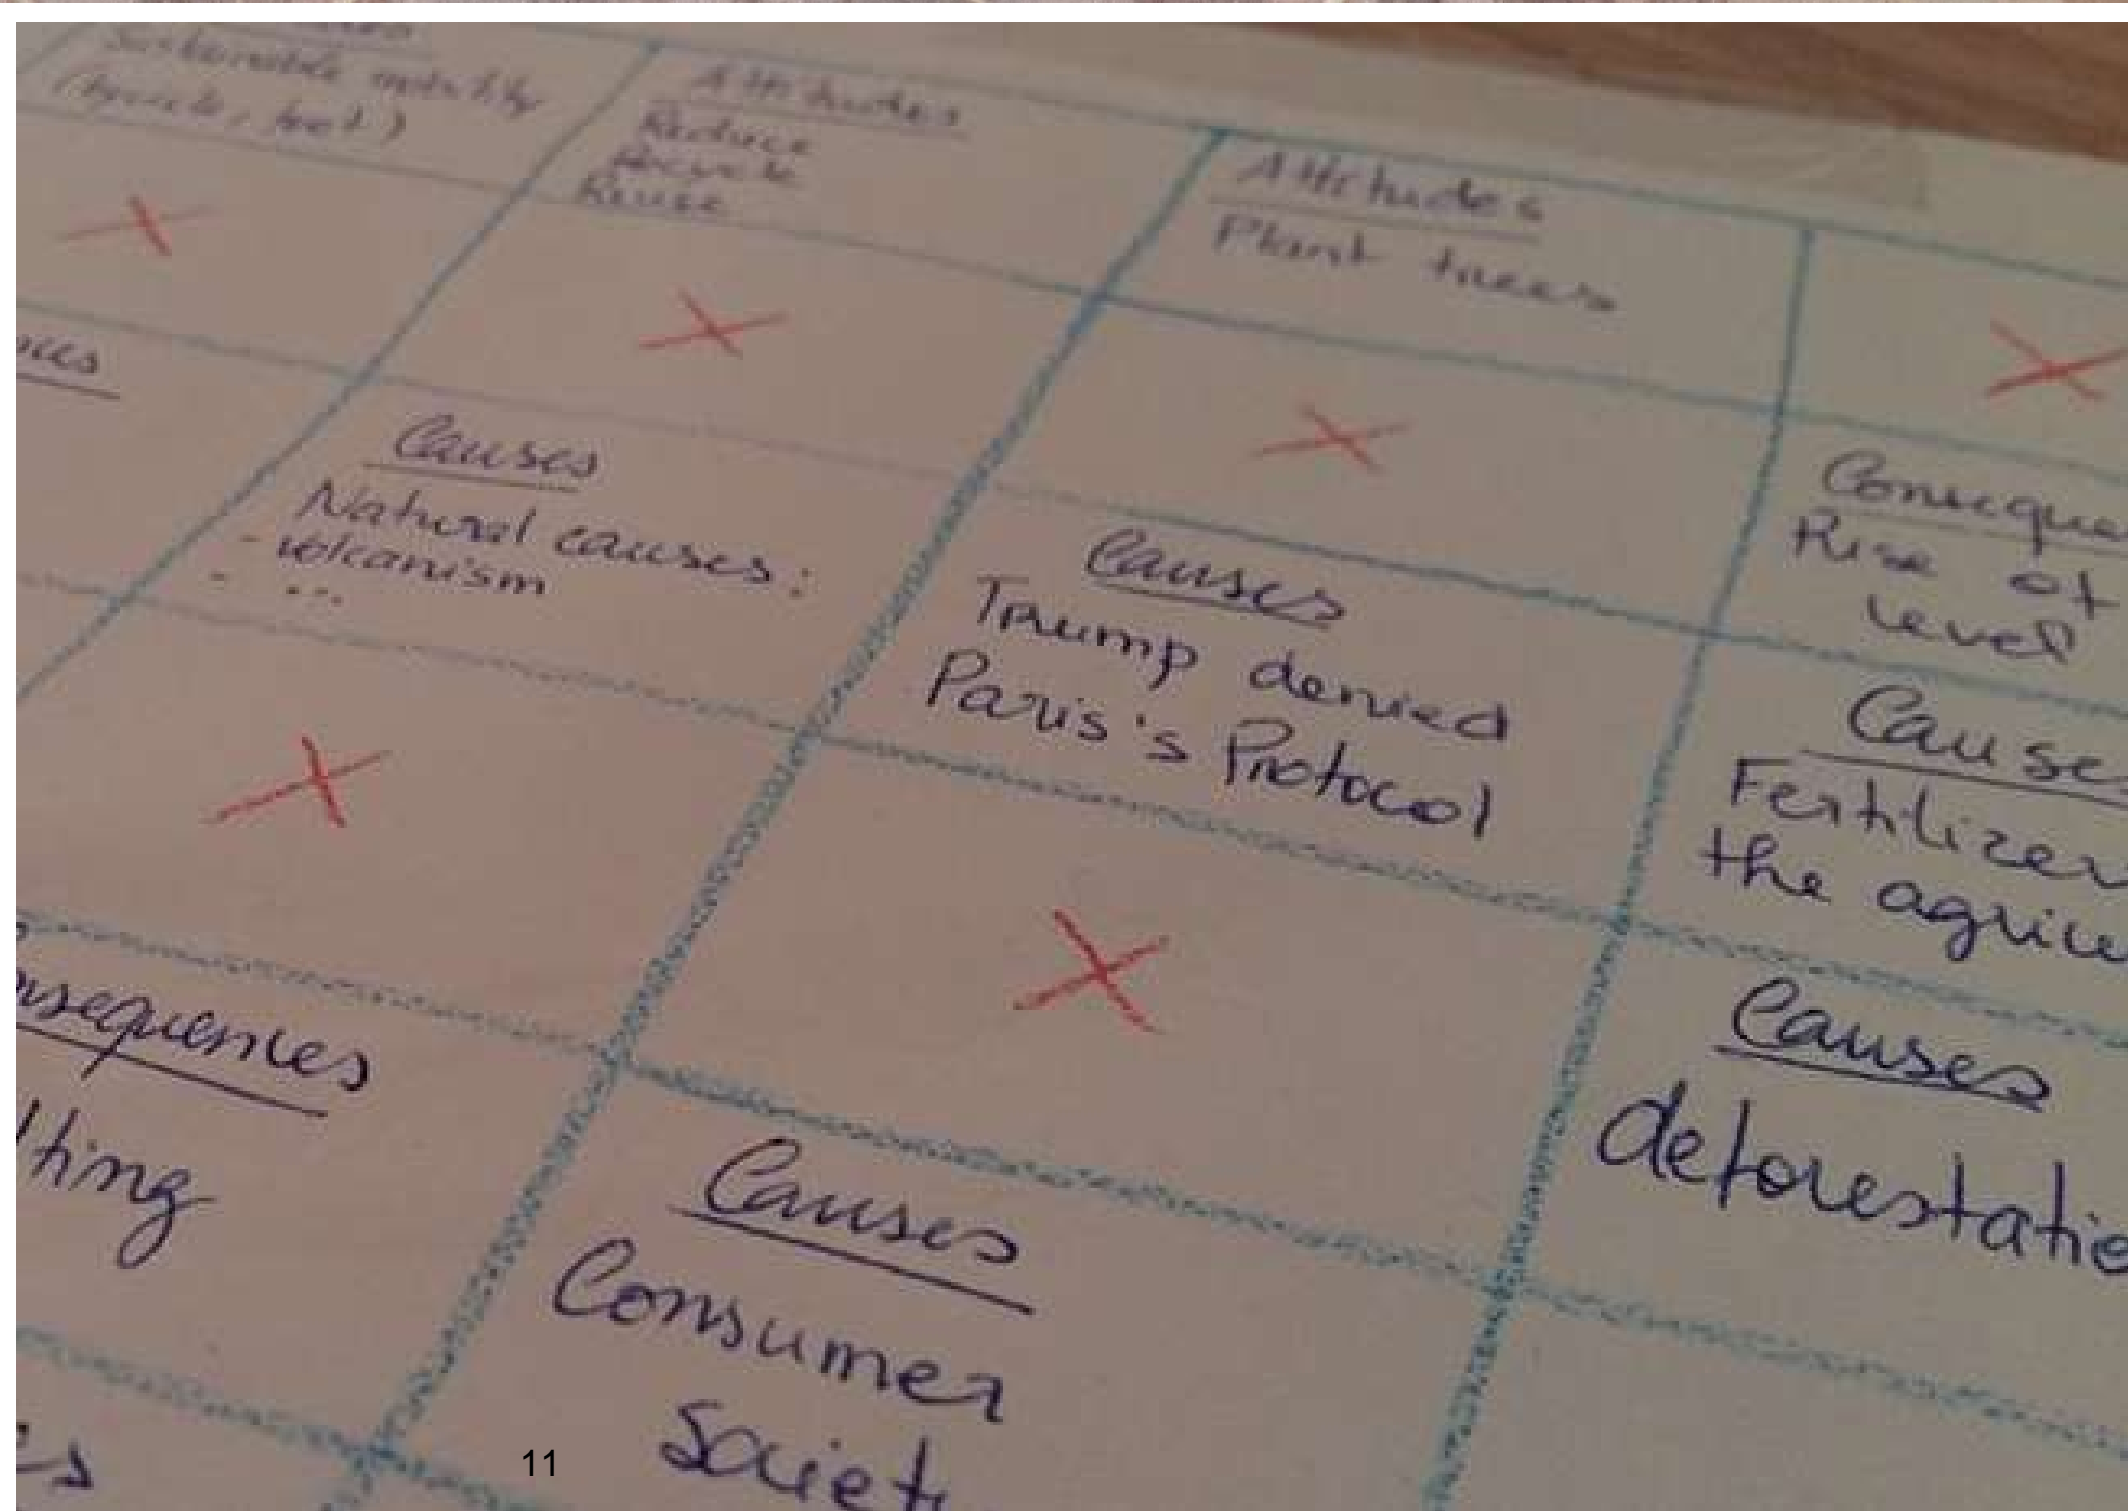 Sustainable mobility
(bycicle, foot)
Attitudes
Reduce
Recycle
Reuse
Attitudes
Plant trees
Causes
Natural causes:
- volcanism
- ...
Causes
Trump denied
Paris's Protocol
Conseque
Rise of
level
Causes
Fertilizer
the agricu
nsequences
lting
Causes
Consumer
Societ
Causes
deforestatio
es
11